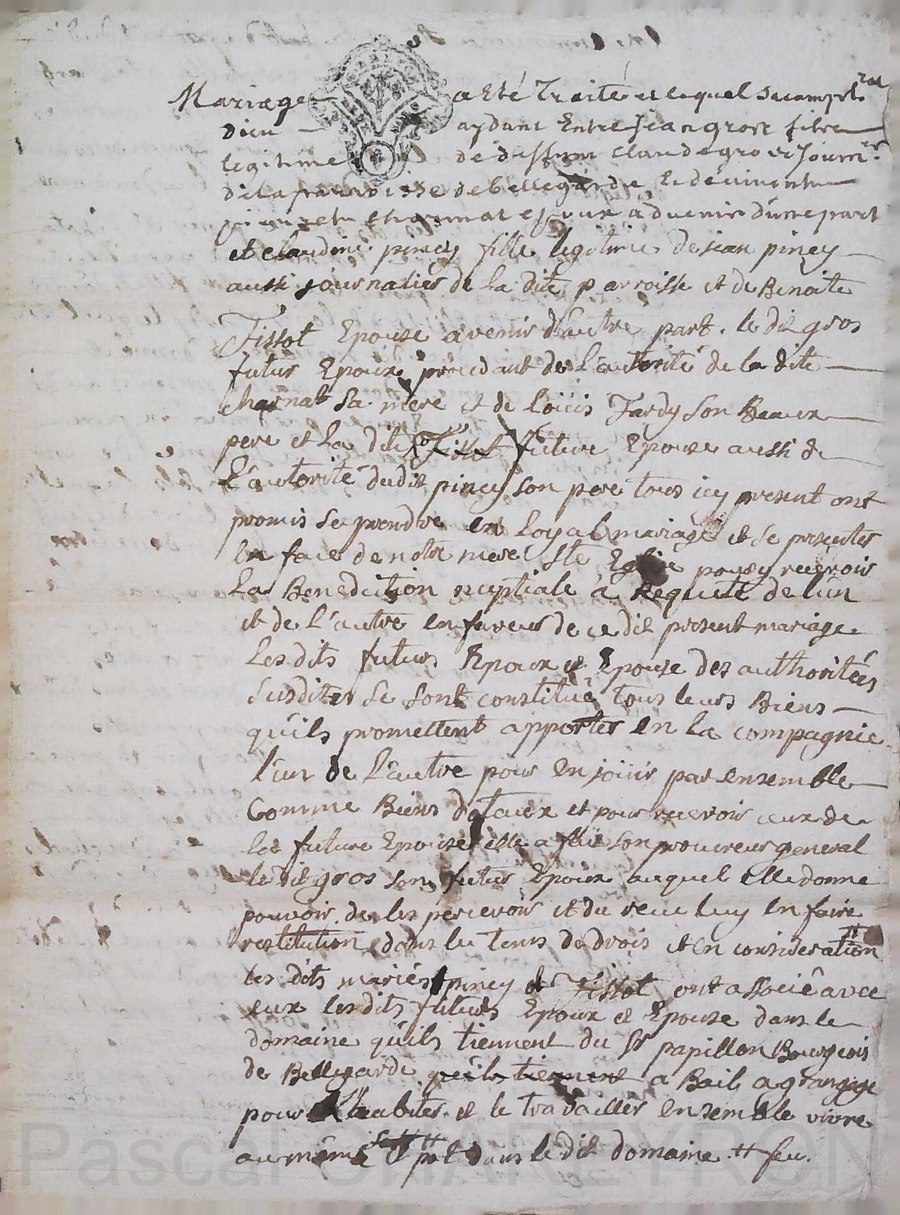 Mariage a Eté Traité et lequel sacompli ra
Dieu aydant Entre Jean gros fils
legitime de deffunt Claude gros Journr
de la parroisse de Bellegarde Et de vivente
charnat Epoux advenir d'une part
et claudine piney fille legitime de jean piney
aussi journalier de la dite parroisse et de Benoite
Tissot Epouse avenir d'autre part. le dit gros
futur Epoux procedant de L'autorité de la dite
charnat sa mere et de Loüis Tardy son Beaux
pere et la dite Tissot future Epouse aussi de
L'autorité dudit piney son pere tous icy present ont
promis se prendre en Loyal mariage et se presenter
En face de notre mere Ste Eglise pour y recevoir
La Benediction nuptiale a Requete de l'un
et de L'autre en faveur de ce dit present mariage
Lesdits futurs Epoux et Epouse des authorités
susdites se sont constitué tous leurs Biens
qu'ils promettent apporter En La compagnie
l'un de L'autre pour En joüir par ensemble
Comme Biens dotaux et pour recevoir ceux de
la future Epouse elle a fait son procureur general
le dit gros son futur Epoux auquel elle donne
pouvoir de les percevoir et du receu luy en faire
restitution dans les tems de drois et en consideration
les dits mariés piney et Tissot ont associé avec
eux lesdits futurs Epoux et Epouse dans le
domaine qu'ils tiennent du Sr papillon Bourgeois
de Bellegarde qu'ils tiennent a Bail a grangage
pour L'habiter et le travailler ensemble vivre
au même pot dans le dit domaine # feu.
Pascal CHAREYRON